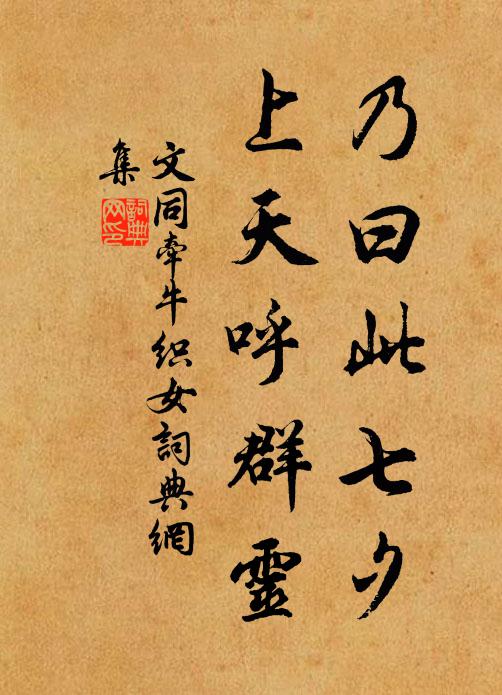 乃曰此七夕
上天呼群靈
文同牽牛织女詞典網
集
詞典網印